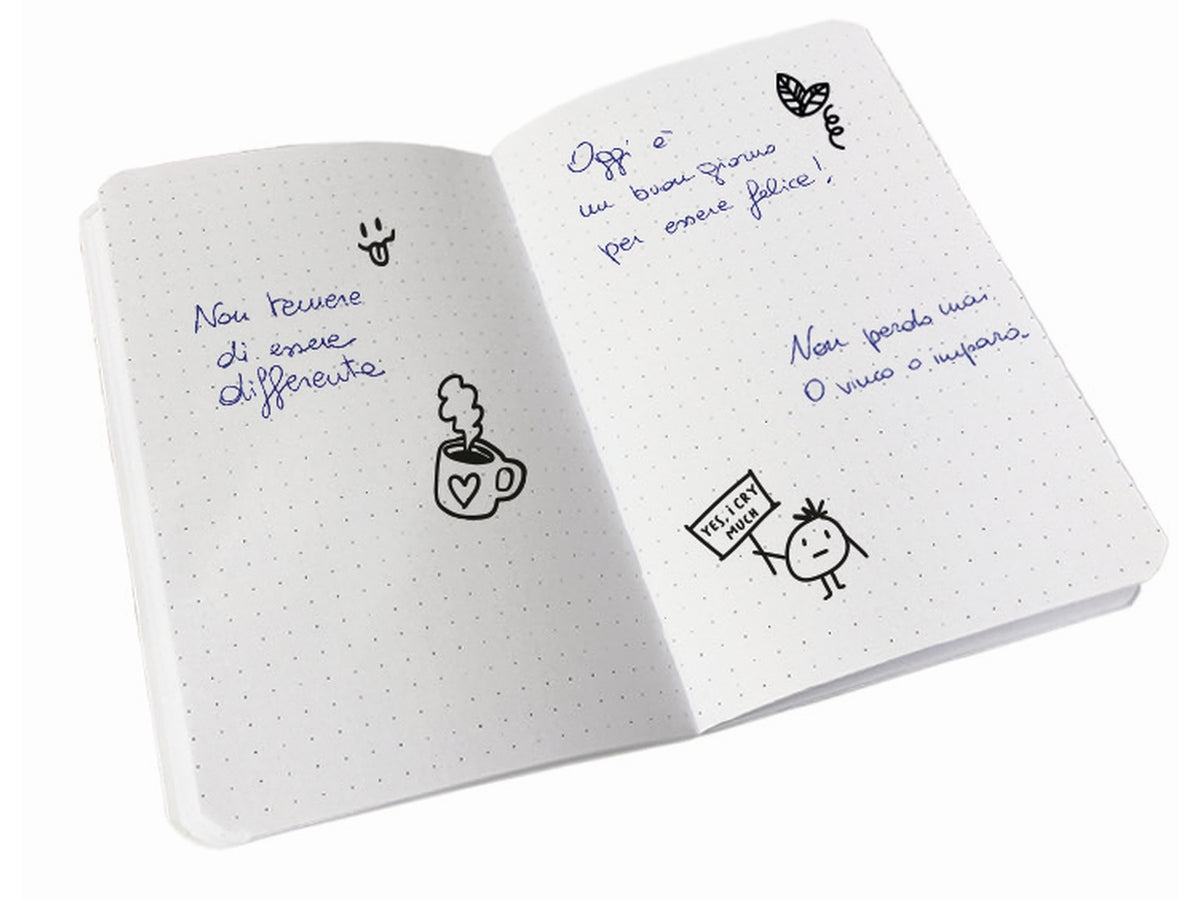 Non temere
di essere
differente
Oggi è
un buon giorno
per essere felice!
Non perdo mai.
O vinco o imparo.
YES, i CRY
MUCH